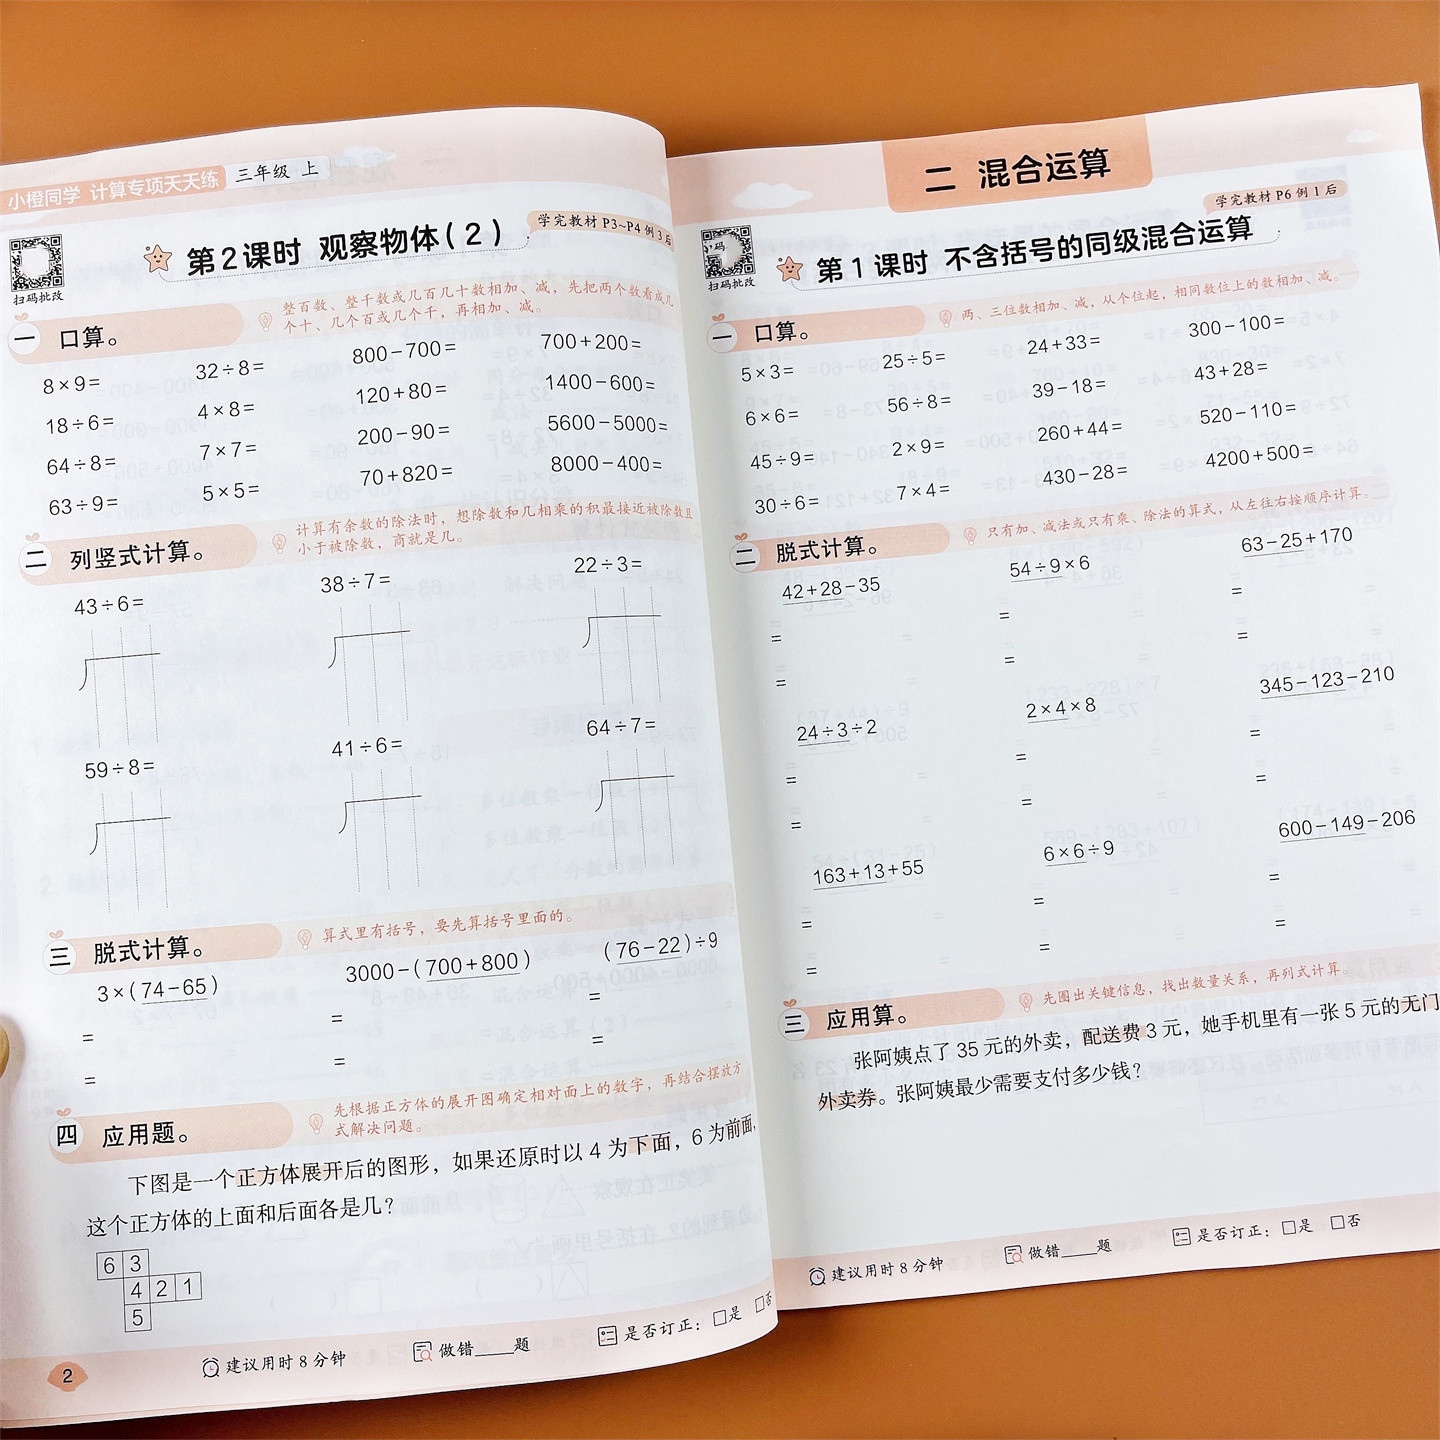 小橙同学 计算专项天天练 三年级 上
扫码批改
第2课时 观察物体(2)
学完教材 P3~P4 例 3 后
一 口算。
整百数、整千数或几百几十数相加、减，先把两个数看成几
个十、几个百或几个千，再相加、减。
8×9= 32÷8= 800-700= 700+200=
18÷6= 4×8= 120+80= 1400-600=
64÷8= 7×7= 200-90= 5600-5000=
63÷9= 5×5= 70+820= 8000-400=
二 列竖式计算。
计算有余数的除法时，想除数和几相乘的积最接近被除数且
小于被除数，商就是几。
43÷6= 38÷7= 22÷3=
59÷8= 41÷6= 64÷7=
三 脱式计算。
算式里有括号，要先算括号里面的。
3×(74-65) 3000-(700+800) (76-22)÷9
= = =
= = =
四 应用题。
先根据正方体的展开图确定相对面上的数字，再结合摆放方
式解决问题。
下图是一个正方体展开后的图形，如果还原时以 4 为下面，6 为前面，
这个正方体的上面和后面各是几？
6 3
4 2 1
5
2
建议用时 8 分钟 做错____题 是否订正：□是 □否
二 混合运算
学完教材 P6 例 1 后
扫码批改
第1课时 不含括号的同级混合运算
一 口算。
两、三位数相加、减，从个位起，相同数位上的数相加、减。
5×3= 25÷5= 24+33= 300-100=
6×6= 56÷8= 39-18= 43+28=
45÷9= 2×9= 260+44= 520-110=
30÷6= 7×4= 430-28= 4200+500=
二 脱式计算。
只有加、减法或只有乘、除法的算式，从左往右按顺序计算。
42+28-35 54÷9×6 63-25+170
= = =
= = =
24÷3÷2 2×4×8 345-123-210
= = =
= = =
163+13+55 6×6÷9 600-149-206
= = =
= = =
三 应用算。
先圈出关键信息，找出数量关系，再列式计算。
张阿姨点了 35 元的外卖，配送费 3 元，她手机里有一张 5 元的无门
外卖券。张阿姨最少需要支付多少钱？
建议用时 8 分钟 做错____题 是否订正：□是 □否